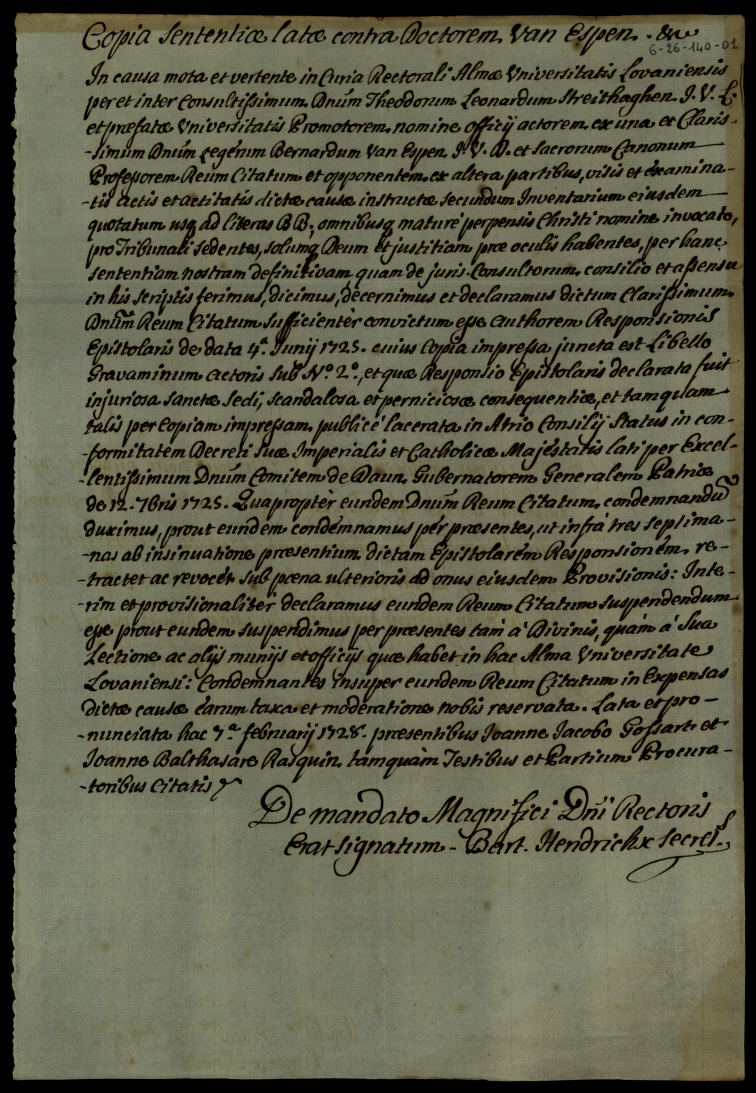 Copia Sententiæ latæ contra Doctorem Van Espen. &c
6-26-140-01
In causa mota et vertente in Curia Rectorali Almæ Universitatis Lovaniensis
per et inter Consultissimum Dnum Theodorum Leonardum Streithaghen J. V. L.
et præfatæ Universitatis Promotorem nomine officij actorem ex una et Claris-
-simum Dnum Zegerum Bernardum Van Espen J. V. D. et Sacrorum Canonum
Professorem Reum Citatum et opponentem ex altera partibus, visis et examina-
-tis actis et actitatis dictæ causæ instructæ secundum Inventarium eiusdem
quotatum usq ad literas BB, omnibusq maturè perpensis Christi nomine invocato,
pro Tribunali sedentes, solumq Deum et justitiam præ oculis habentes, per hanc
sententiam nostram definitivam quam de juris-Consultorum consilio et assensu
in his scriptis ferimus, dicimus, decernimus et declaramus dictum Clarissimum
Dnum Reum Citatum sufficientèr convictum esse Authorem Responsionis
Epistolaris de data 4ª Junij 1725. cuius Copia impressa juncta est Libello
Gravaminum Actoris Sub Nº 2º, et quæ Responsio Epistolaris declarata fuit
injuriosa Sanctæ Sedi, scandalosa et perniciosæ consequentiæ, et tamquam
talis per Copiam impressam publicè lacerata in Atrio Consilij Status in con-
-formitatem Decreti Suæ Imperialis et Catholicæ Majestatis lati per Excel-
-lentissimum Dnum Comitem de Daun Gubernatorem Generalem Patriæ
de 12. 7bris 1725. Quapropter eundem Dnum Reum Citatum condemnandū
duximus, prout eundem condemnamus per præsentes, ut infrà tres septima-
-nas ab insinuatione præsentium dictam Epistolarem Responsionem re-
-tractet ac revocet sub pœna ulterioris ad onus eiusdem Provisionis: Inte-
-rim et provisionaliter declaramus eundem Reum Citatum suspendendum
esse prout eundem suspendimus per præsentes tam à Divinis, quàm à Sua
Lectione ac alijs munijs et officijs quæ habet in hac Alma Universitate
Lovaniensi: Condemnantes insuper eundem Reum Citatum in Expensas
dictæ causæ earum taxa et moderatione nobis reservata. Lata et pro-
-nunciata hac 7ª februarij 1728. præsentibus Joanne Jacobo Gossart et
Joanne Balthasare Rasquin tamquàm Testibus et Partium Procura-
-toribus Citatis
De mandato Magnifici Dni Rectoris
Erat signatum - Bart. Hendrickx Secret.